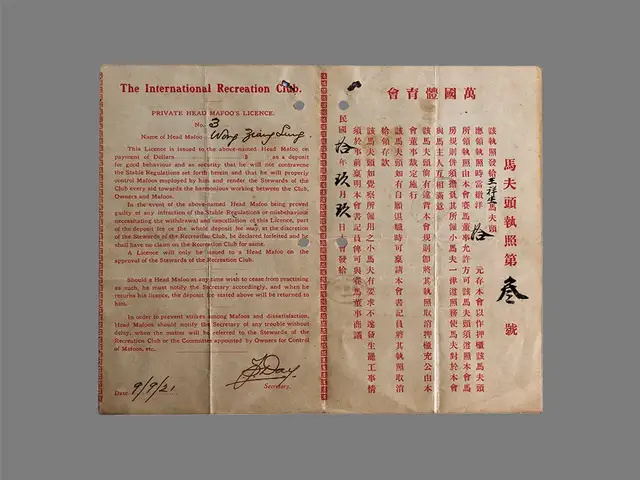 The International Recreation Club.
PRIVATE HEAD MAFOO'S LICENCE.
No. 3
Name of Head Mafoo Wong Ziang Sung.
This Licence is issued to the above-named Head Mafoo on
payment of Dollars $ as a deposit
for good behaviour and as security that he will not contravene
the Stable Regulations set forth herein and that he will properly
control Mafoos employed by him and render the Stewards of the
Club every aid towards the harmonious working between the Club,
Owners and Mafoos.
In the event of the above-named Head Mafoo being proved
guilty of any infraction of the Stable Regulations or misbehaviour
necessitating the withdrawal and cancellation of this Licence, part
of the deposit fee or the whole deposit fee may, at the discretion
of the Stewards of the Recreation Club, be declared forfeited and he
shall have no claim on the Recreation Club for same.
A Licence will only be issued to a Head Mafoo on the
approval of the Stewards of the Recreation Club.
Should a Head Mafoo at any time wish to cease from practising
as such, he must notify the Secretary accordingly, and when he
returns his licence, the deposit fee stated above will be returned to
him.
In order to prevent strikes among Mafoos and dissatisfaction,
Head Mafoos should notify the Secretary of any trouble without
delay, when the matter will be referred to the Stewards of the
Recreation Club or the Committee appointed by Owners for Control
of Mafoos, etc.
Date 9/9/21
Day
Secretary.
會育體國萬
馬夫頭執照第叁號
該執照發給王祥生馬夫頭
應領執照時當繳洋拾元存本會以作押櫃該馬夫頭
所領執照由本會賽馬董事允許方可該馬夫頭須遵照本會馬
房規則併須擔載其所僱小馬夫一律遵照務使馬夫對於本會
與馬主人互相滿意
該馬夫頭倘有違背本會規則卽將其執照取消押櫃充公由本
會董事裁定施行
該馬夫頭如有自願退職時可稟請本會書記員將其執照取消
給領存款
該馬夫頭如覺察所僱用之小馬夫有要求不遂發生罷工事情
須於事前稟明本會書記員俾可與賽馬董事商議
民國拾年玖月玖日本會發給